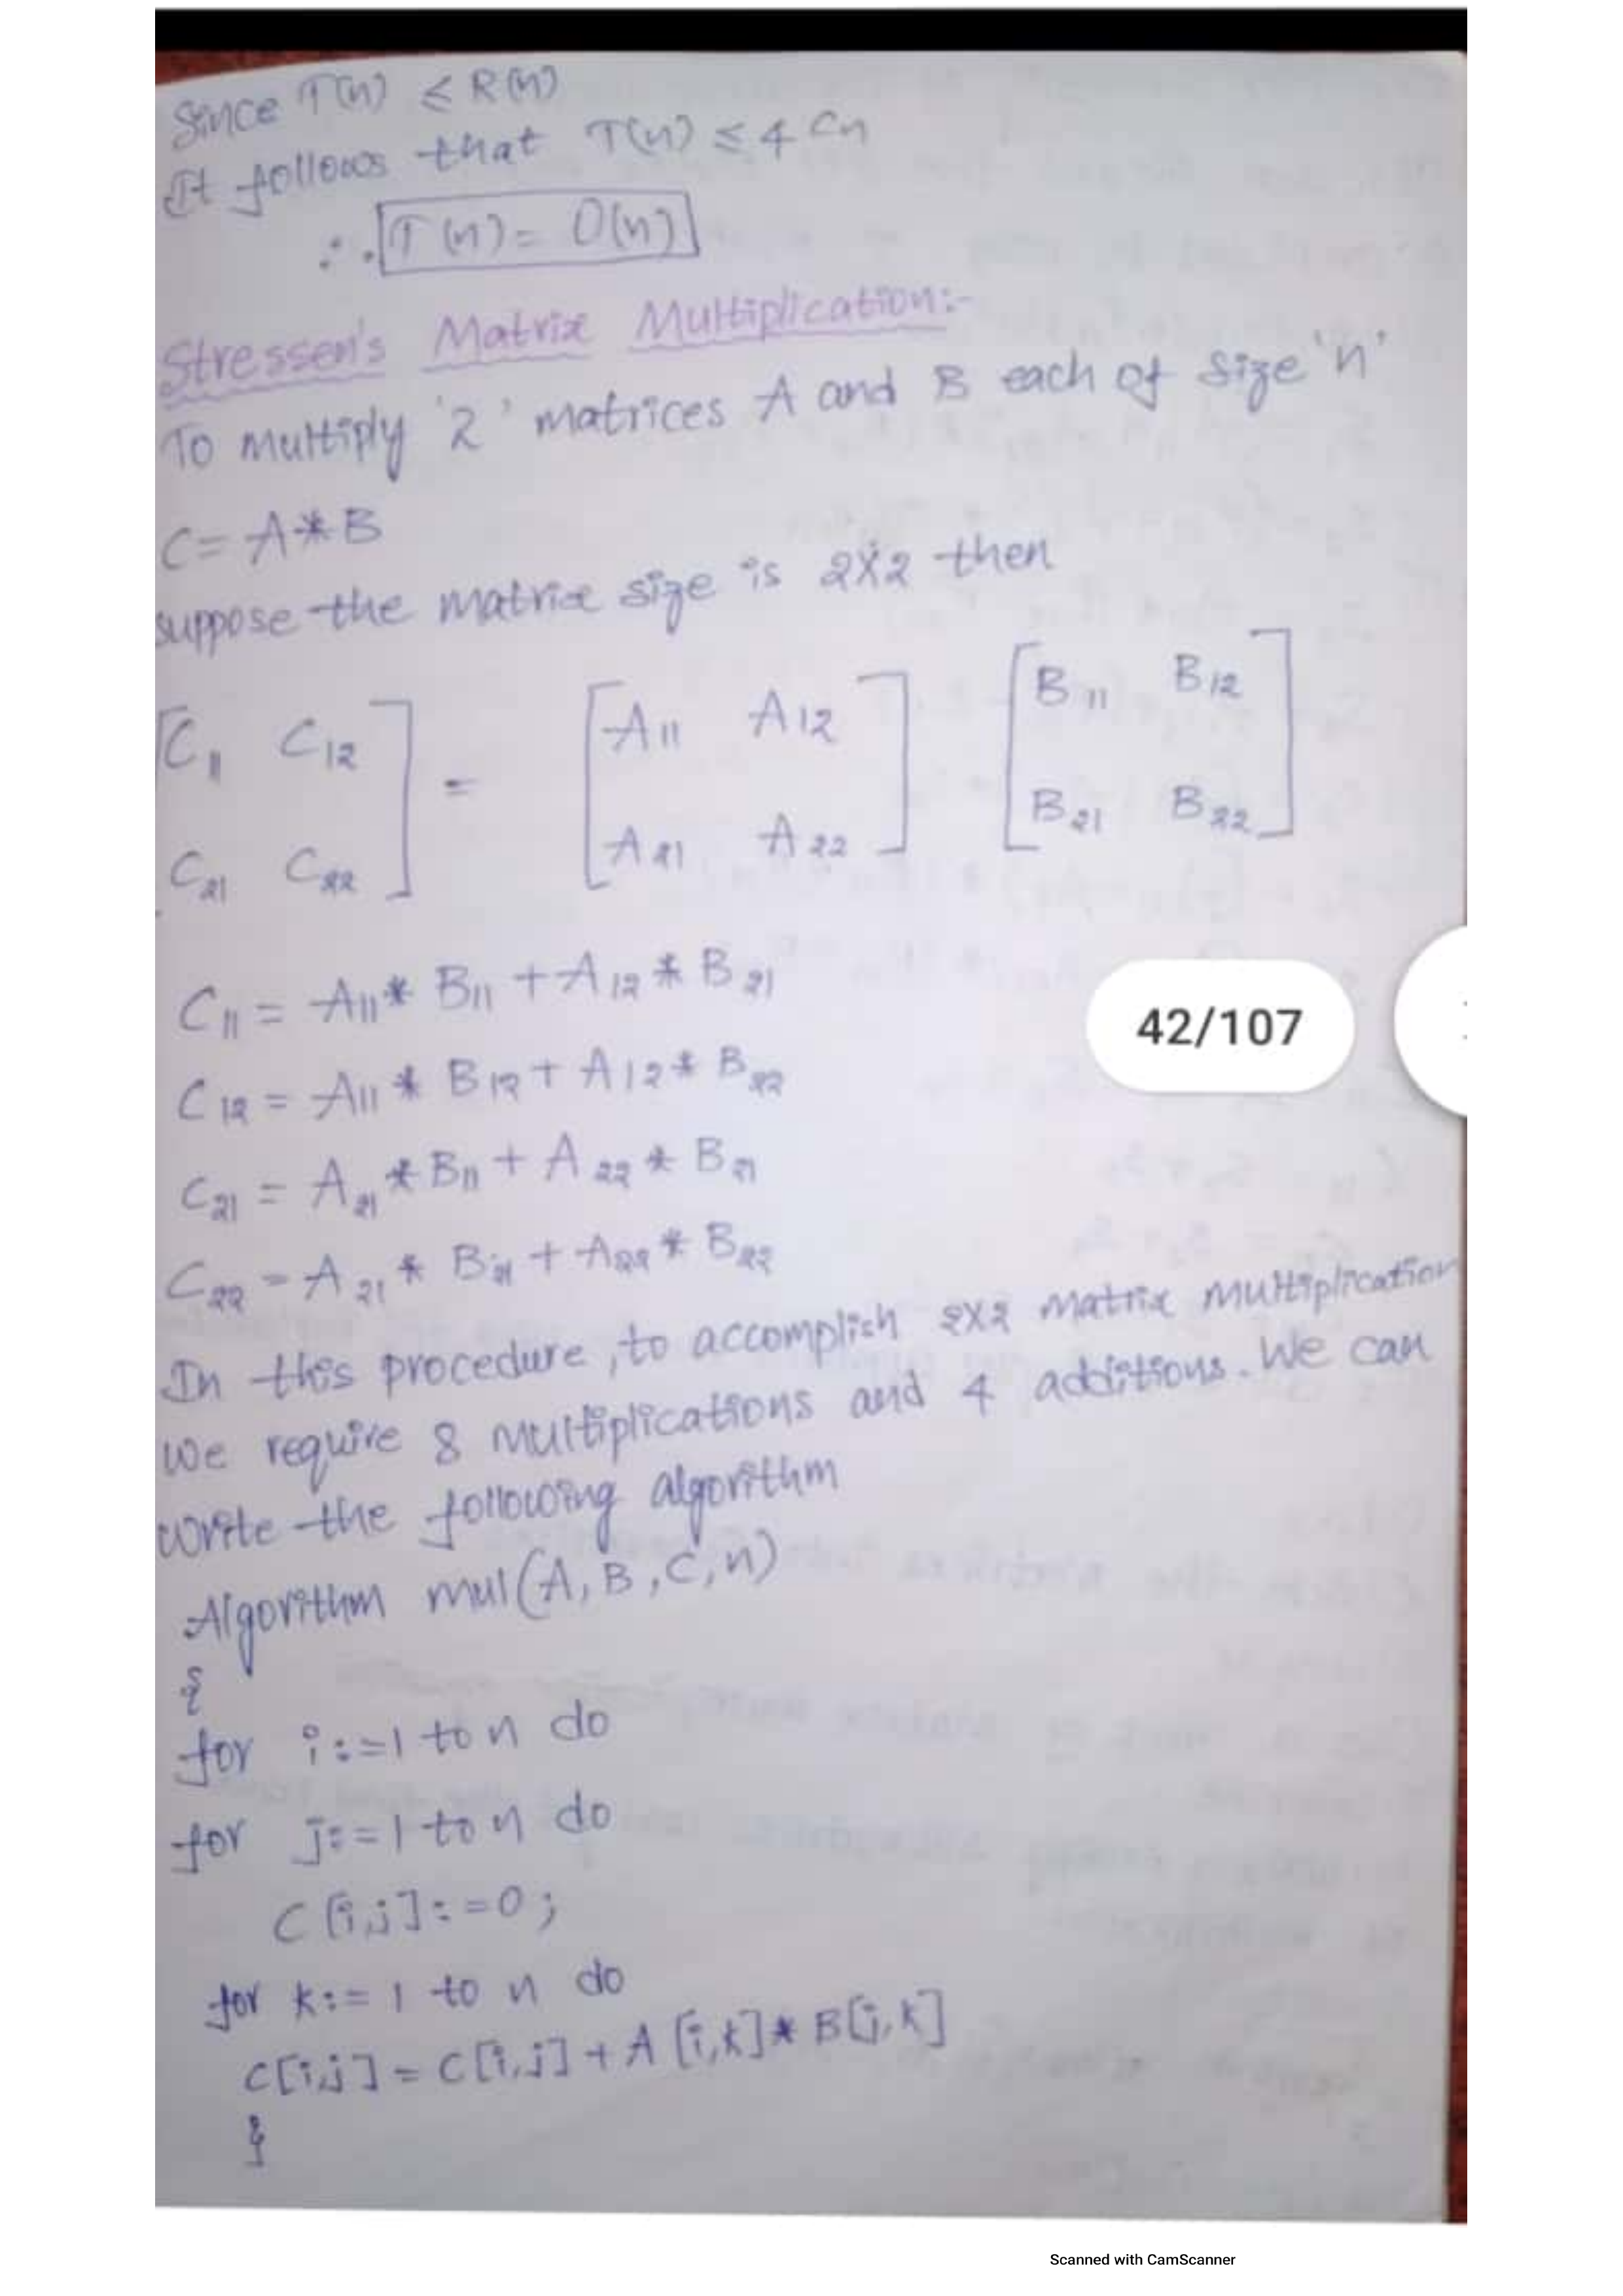 Since T(n) ≤ R(n)
It follows that T(n) ≤ 4 Cn
∴ T(n) = O(n)
Stressen's Matrix Multiplication:-
To multiply '2' matrices A and B each of size 'n'
C = A * B
suppose the matrix size is 2x2 then
[C11 C12] = [A11 A12] [B11 B12]
[C21 C22] [A21 A22] [B21 B22]
C11 = A11 * B11 + A12 * B21
C12 = A11 * B12 + A12 * B22
C21 = A21 * B11 + A22 * B21
C22 = A21 * B21 + A22 * B22
42/107
In this procedure, to accomplish 2x2 matrix multiplication
We require 8 multiplications and 4 additions. We can
write the following algorithm
Algorithm mul(A, B, C, n)
{
for i:=1 to n do
for j:=1 to n do
C[i,j]:=0;
for k:=1 to n do
C[i,j] = C[i,j] + A[i,k] * B[j,k]
}
Scanned with CamScanner